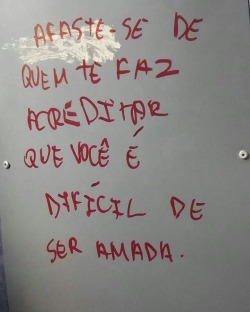 AFASTE-SE DE
QUEM TE FAZ
ACREDITAR
QUE VOCÊ É
DIFÍCIL DE
SER AMADA.